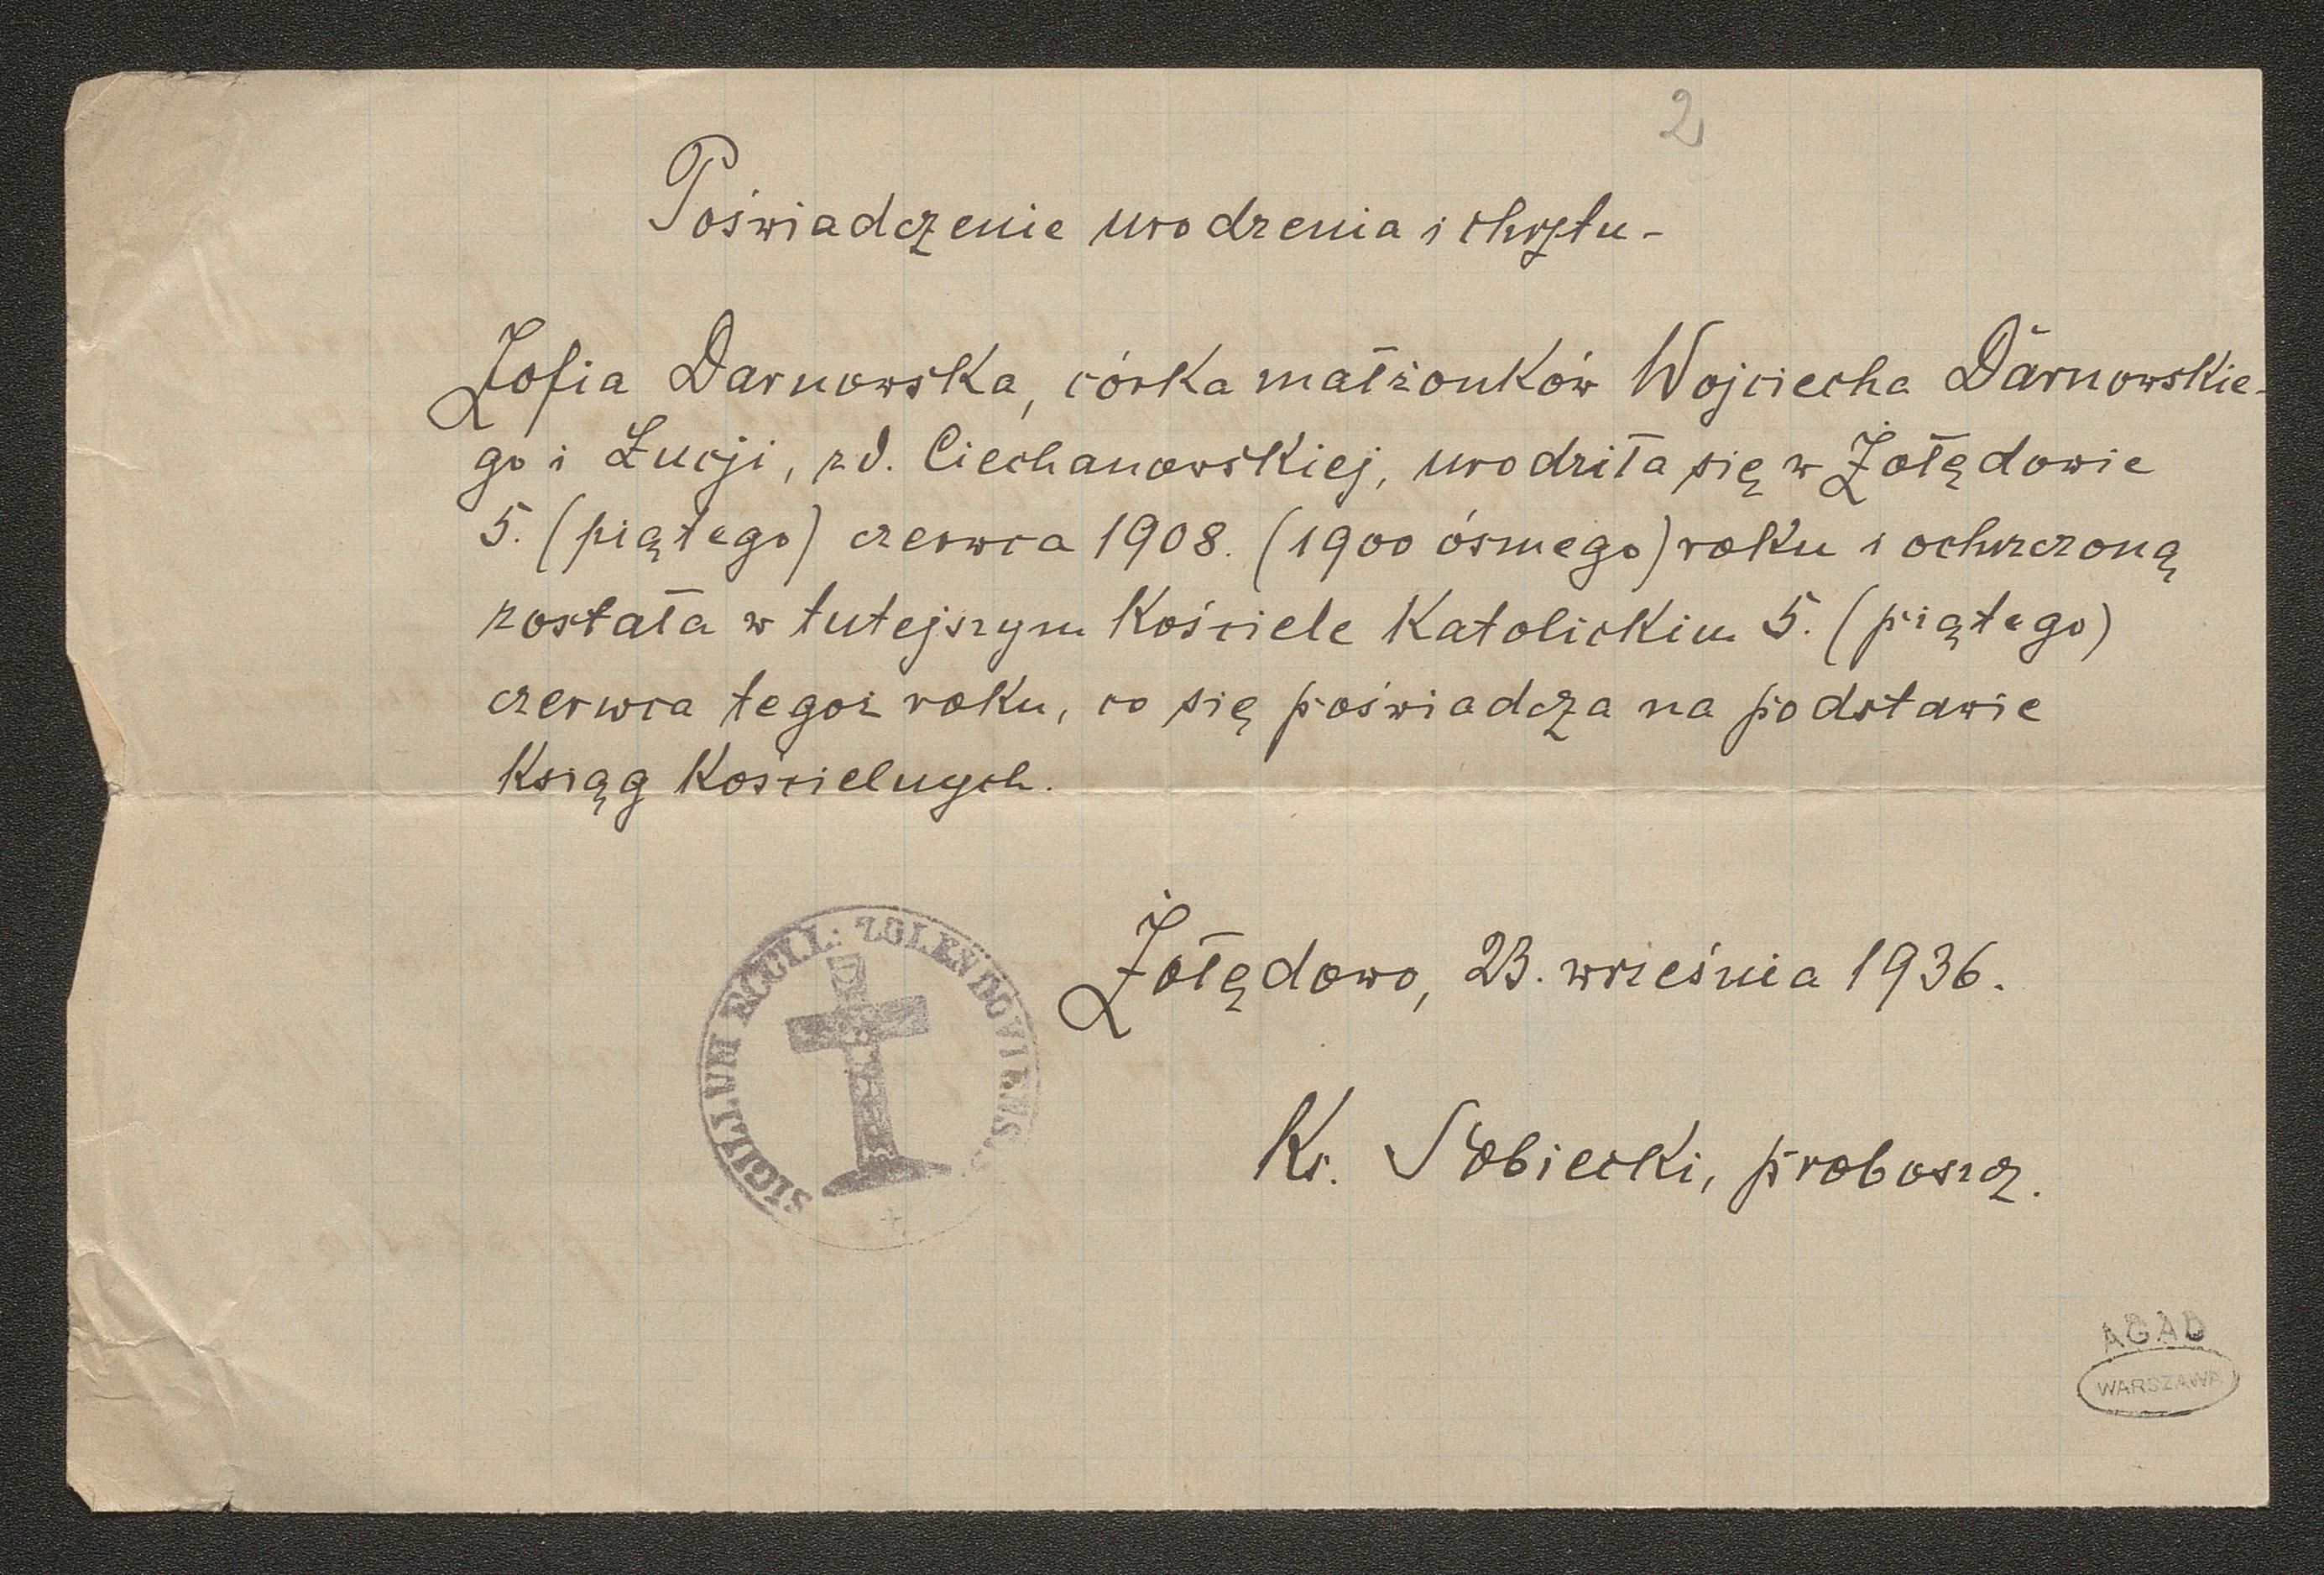 2
Poświadczenie urodzenia i chrztu -
Zofia Darnowska, córka małżonków Wojciecha Darnowskie-
go i Łucji, zd. Ciechanowskiej, urodziła się w Żołędowie
5. (piątego) czerwca 1908. (1900 ósmego) roku i ochrzczoną
została w tutejszym Kościele Katolickim 5. (piątego)
czerwca tegoż roku, co się poświadcza na podstawie
Ksiąg Kościelnych.
SIGILLUM ECCLL: ZOLENDOVIENS.
Żołędowo, 23. września 1936.
Ks. Sobiecki, proboszcz.
AGAD
WARSZAWA